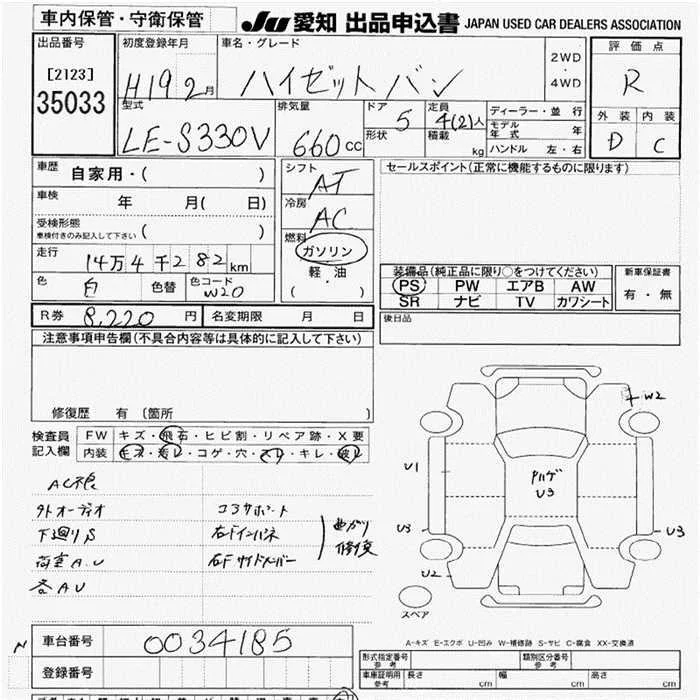 車内保管・守衛保管 JU 愛知 出品申込書 JAPAN USED CAR DEALERS ASSOCIATION
出品番号 初度登録年月 車名・グレード 評価点
[2123] H19 2月 ハイゼットバン 2WD・4WD R
35033 型式 排気量 ドア 定員 ディーラー・並行 外装 内装
LE-S330V 660cc 5 4(2)人 モデル年式 年 D C
形状 積載 kg ハンドル 左・右
車歴 自家用・( ) シフト AT セールスポイント(正常に機能するものに限ります)
車検 年 月( 日) 冷房 AC
受検形態 ( )
車検付きのみ記入して下さい
燃料 ガソリン
走行 14万4千282km 軽油 装備品(純正品に限り○をつけてください) 新車保証書
色 白 色替 色コード W20 ( ) PS PW エアB AW 有・無
SR ナビ TV カワシート
R券 8,220円 名変期限 月 日 後日品
注意事項申告欄(不具合内容等は具体的に記入して下さい)
修復歴 有(箇所 )
W2
検査員 FW キズ・飛石・ヒビ割・リペア跡・X要
記入欄 内装 キズ・汚レ・コゲ・穴・スレ・キレ・破レ
AC不良 U1
外オーディオ コアサポート ハゲ
U3
下廻りS 右Fインパネ 曲がり
荷室A.U 右Fサイドメンバー 修復
U3 U3
各AU U2
スペア
A-キズ E-エクボ U-凹み W-補修跡 S-サビ C-腐食 XX-交換済
車台番号 0034185
登録番号
型式指定番号 参考 類別区分番号 参考
車庫証明用 参考 長さ cm 幅 cm 高さ cm